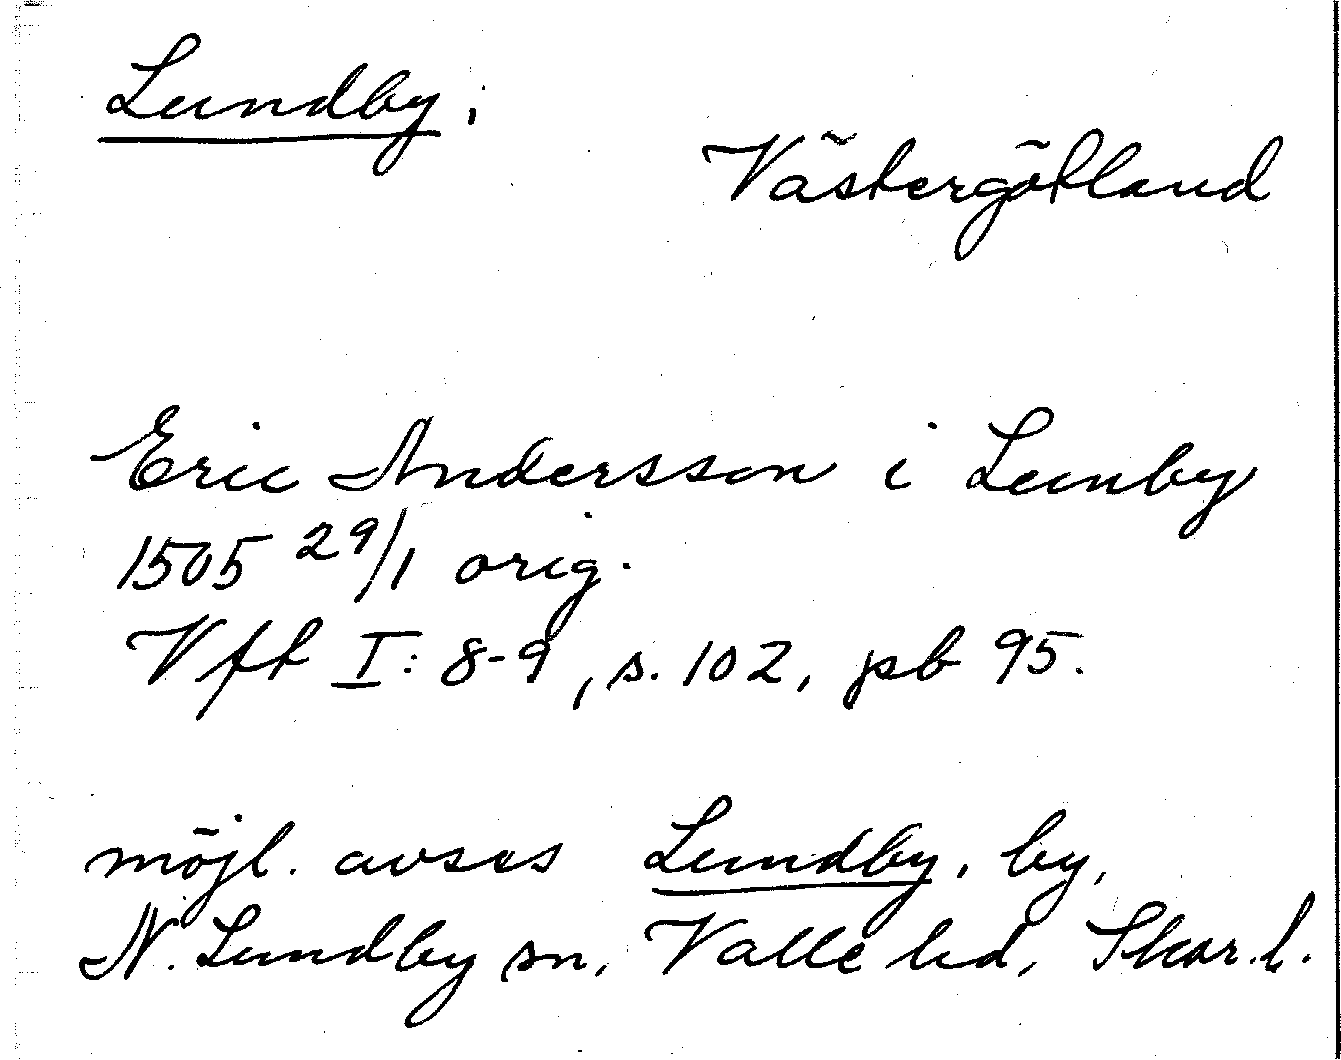 Lundby,
Västergötland
Eric Andersson i Lunby
1505 29/1 orig.
Vft I: 8-9, s. 102, pb 95.
möjl. avses Lundby, by,
N. Lundby sn, Valle hd, Skar. l.